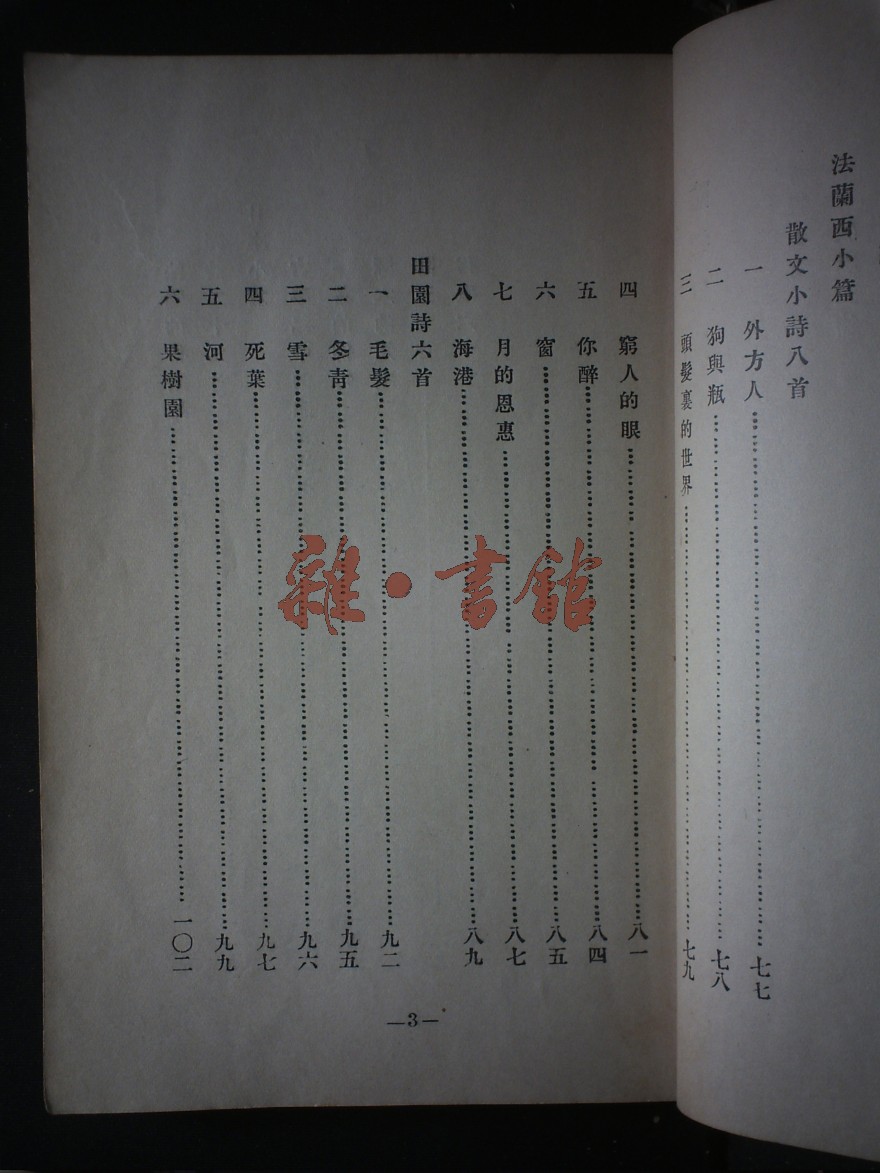 法蘭西小篇
散文小詩八首
一 外方人……七七
二 狗與瓶……七八
三 頭髮裏的世界……七九
四 窮人的眼……八一
五 你醉……八四
六 窗……八五
七 月的恩惠……八七
八 海港……八九
田園詩六首
一 毛髮……九二
二 冬青……九五
三 雪……九六
四 死葉……九七
五 河……九九
六 果樹園……一〇二
—3—
雜·書館